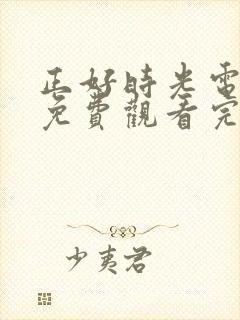 正好時光電
免費觀看完
少夷君